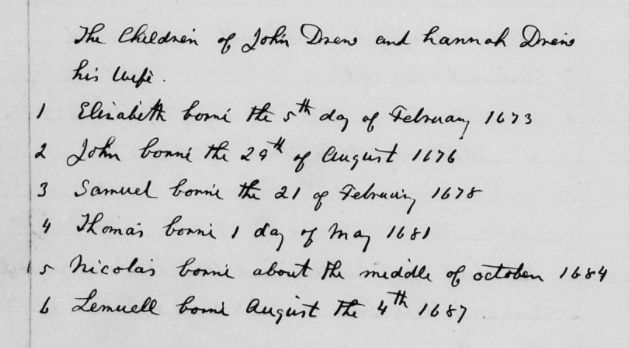 The Children of John Drew and hannah Drew
his wife.
1 Elizabeth borne the 5th day of February 1673
2 John borne the 29th of August 1676
3 Samuel borne the 21 of February 1678
4 Thomas borne 1 day of May 1681
5 Nicolas borne about the middle of october 1684
6 Lemuell borne August the 4th 1687